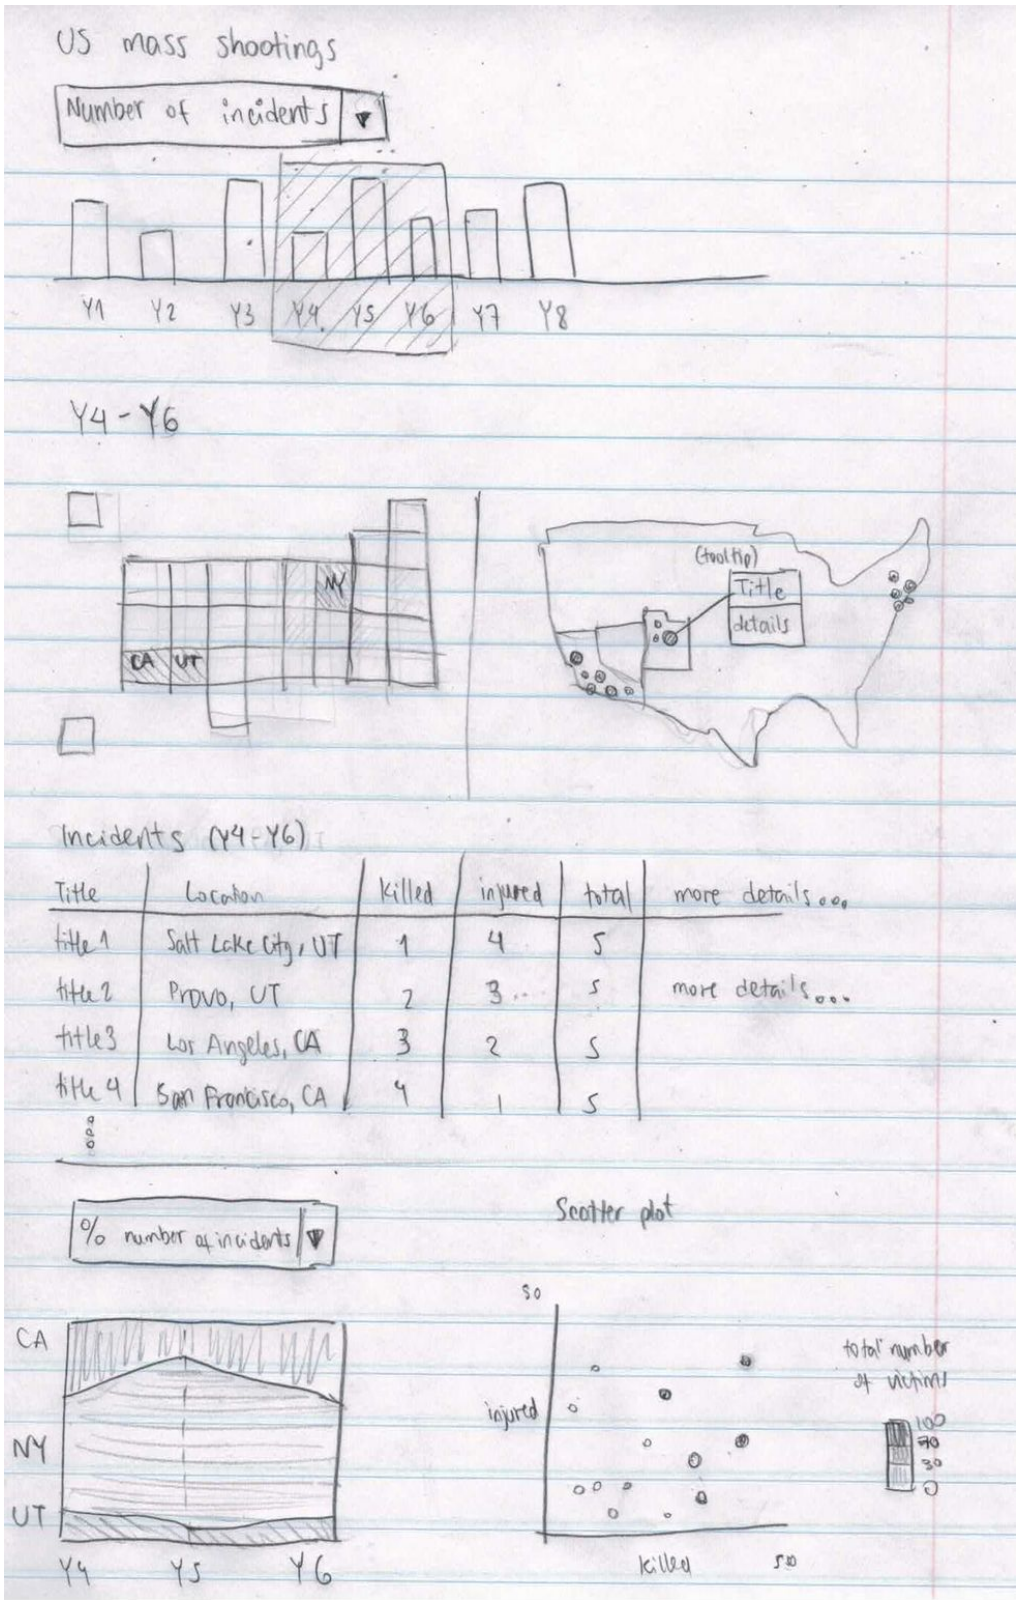 US mass shootings
Number of incidents ▼
Y1 Y2 Y3 Y4 Y5 Y6 Y7 Y8
Y4 - Y6
NY
CA UT
(tooltip)
Title
details
Incidents (Y4-Y6)
Title Location Killed injured total more details...
title 1 Salt Lake City, UT 1 4 5
title 2 Provo, UT 2 3 5 more details...
title 3 Los Angeles, CA 3 2 5
title 4 San Francisco, CA 4 1 5
% number of incidents ▼
CA
NY
UT
Y4 Y5 Y6
Scatter plot
50
injured
killed 50
total number
of victims
100
70
30
0